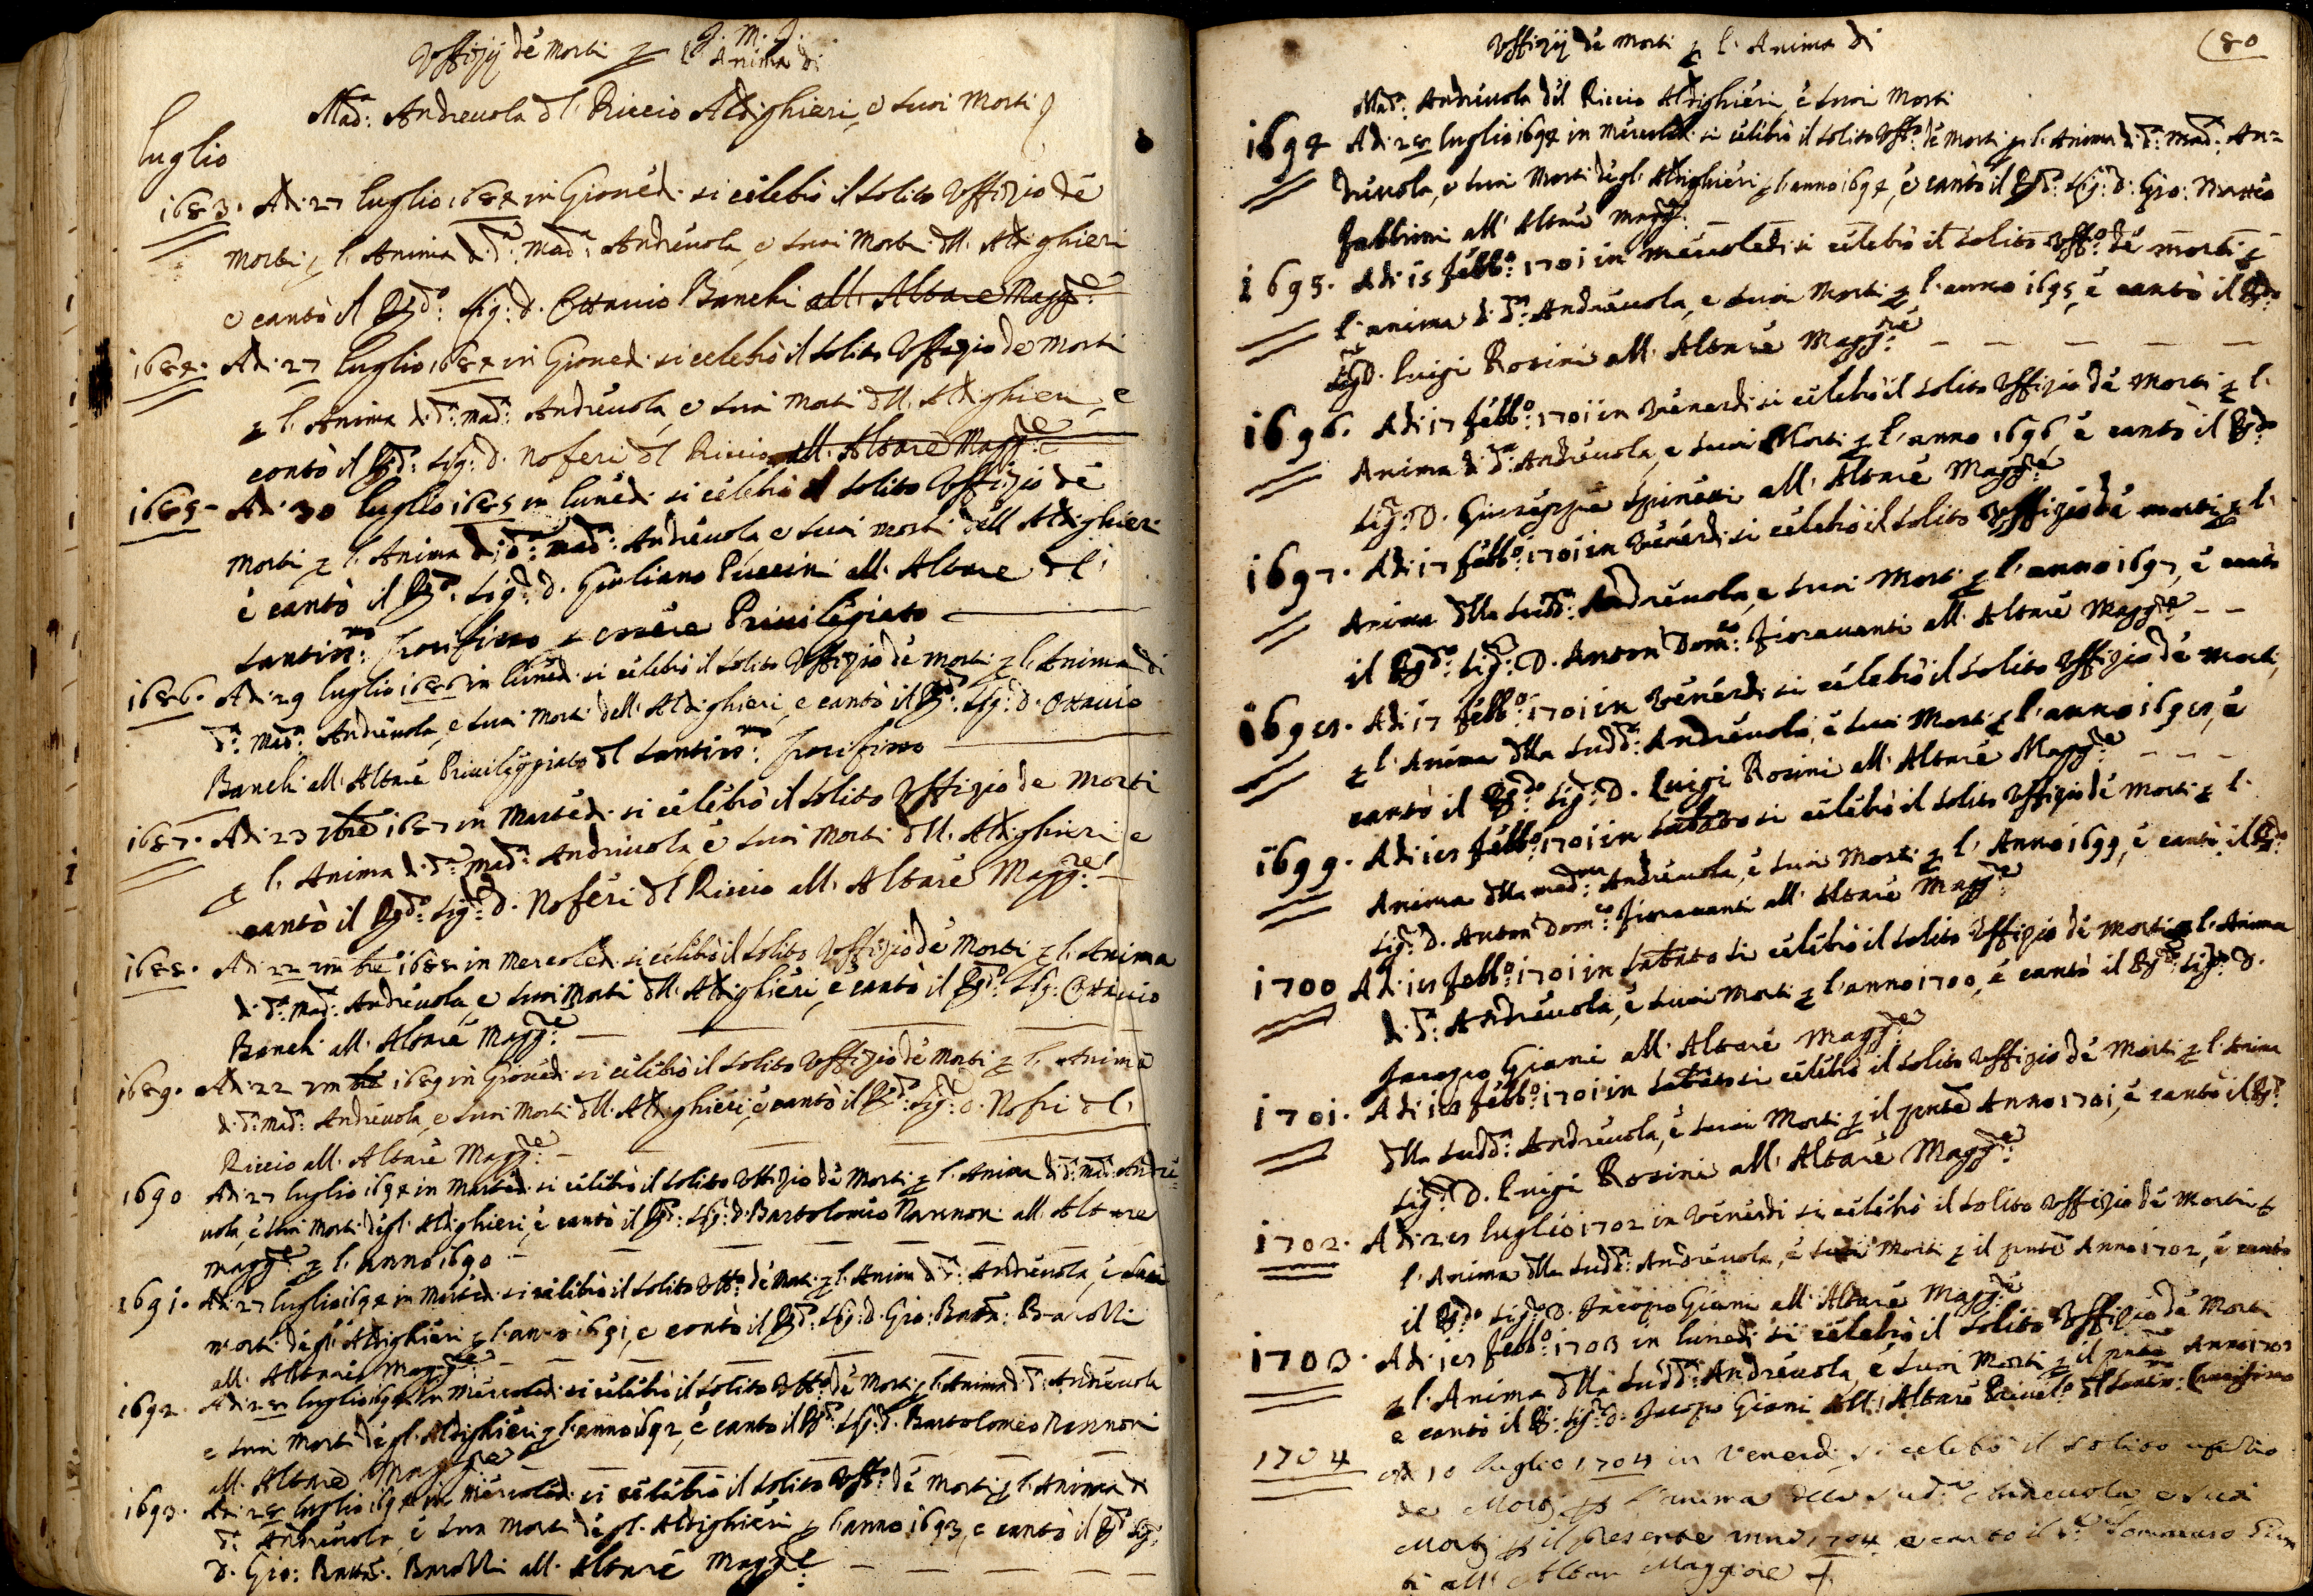 J. M. J.
Uffizij dé Morti p l'Anima di
Mad.ª Andreuola dl Riccio Aldighieri, e suoi Morti
luglio
1683. Adi 27 luglio 1684 in Giouedi si celebrò il solito Uffizio dé
Morti p l'Anima di d.ª Mad.ª Andreuola, e suoi Morti dll Aldighieri
e cantò il Rd.º Sig: d. Ottauio Banchi all' Altare Magg.re
1684. Adi 27 luglio 1684 in Giouedi si celebrò il solito Uffizio de Morti
p l'Anima di d.ª Mad.ª Andreuola, e suoi Morti dll Aldighieri, e
cantò il Rd.º Sig: d. Noferi dl Riccio all' Altare Magg.re
1685 - Adi 30 luglio 1685 in lunedi si celebrò il solito Uffizio dé
Morti p l'Anima di d.ª Mad.ª Andreuola, e suoi Morti dell Aldighieri
è cantò il Rd.º Sig.r d. Giuliano Puccini all' Altare dl
Santiss.mo Crocifisso Priuilegiato
1686. Adi 29 luglio 1686 in lunedi si celebrò il solito Uffizio dé Morti p l'Anima di
d.ª Mad.ª Andreuola, e suoi Morti dell' Aldighieri, e cantò il Rd.º Sig: d. Ottauio
Banchi all' Altare Priuileggiato dl Santiss.mo Crocifisso
1687. Adi 23 7bre 1687 in Martedi si celebrò il solito Uffizio de Morti
p l'Anima di d.ª Mad.ª Andreuola, è suoi Morti dll Aldighieri e
cantò il Rd.º Sig.r d. Noferi dl Riccio all' Altare Magg.re
1688. Adi 22 1688 in Mercoledi si celebrò il solito Uffizio dé Morti p l'Anima
di d.ª Mad.ª Andreuola, e suoi Morti dll Aldighieri, e cantò il Rd.º Sig: Ottauio
Banchi all' Altare Magg.re
1689. Adi 22 1689 in Giouedi si celebrò il solito Uffizio dé Morti p l'Anima
di d.ª Mad.ª Andreuola, e suoi Morti dll Aldighieri, è cantò il Rd.º Sig.r d. Nofri dl
Riccio all' Altare Magg.re
1690 Adi 27 luglio 1694 in Martedi si celebrò il solito Uffizio dé Morti p l'Anima di d.ª Mad.ª Andre=
uola, è suoi Morti dégl' Aldighieri, è cantò il Rd.º Sig: d. Bartolomeo Nannoni all' Altare
Magg.re p l'anno 1690
1691. Adi 27 luglio 1694 in Martedi si celebrò il solito Uff.º dé Morti p l'Anima di d.ª Andreuola, è suoi
Morti dégl' Aldighieri p l'anno 1691, e cantò il Rd.º Sig: d. Gio: Batta: Barolli
all' Altare Magg.re
1692. Adi 28 luglio 1694 in Mercoledi si celebrò il solito Uff.º dé Morti p l'Anima di d.ª Andreuola
e suoi Morti dégl' Aldighieri p l'anno 1692, è cantò il Rd.º Sig: d. Bartolomeo Nannoni
all' Altare Maggre
1693. Adi 28 luglio 1694 in Mercoledi si celebrò il solito Uff.º dé Morti p l'Anima di
d.ª Andreuola, è suoi Morti dégl' Aldighieri p l'anno 1693, e cantò il Rd.º Sig:
d. Gio: Batta: Barolli all' Altare Magg.re
Uffizij dé Morti p l'Anima di
80
Mad.ª Andreuola dél Riccio Aldighieri, è suoi Morti
1694 Adi 28 luglio 1694 in Mercoledi si celebrò il solito Uff.º dé Morti p l'Anima di d.ª Mad.ª An=
dreuola, e suoi Morti dégl' Aldighieri p l'anno 1694, è cantò il Rd.º Sig: d. Gio: Matteo
Fabbrini all' Altare Magg.re
1695. Adi 15 Febb.º 1701 in mercoledi si celebrò il solito Uff.º dé morti p
l'anima di d.ª Andreuola, e suoi Morti p l'anno 1695, è cantò il Rd.º
Sig.r D. Luigi Rosini all' Altare Magg.re
1696. Adi 17 Febb.º 1701 in Venerdi si celebrò il solito Uffizio dé Morti p l'
Anima di d.ª Andreuola, e suoi Morti p l'anno 1696, è cantò il Rd.º
Sig.r D. Giuseppe Spinetti all' Altare Magg.re
1697. Adi 17 Febb.º 1701 in Venerdi si celebrò il solito Uffizio dé morti p l'
Anima dlla Sudd.ª Andreuola, e suoi Morti p l'anno 1697, è cantò
il Rd.º Sig.r D. Anton Dom.co Fiorauanti all' Altare Magg.re
1698. Adi 17 Febb.º 1701 in Venerdi si celebrò il solito Uffizio dé Morti,
p l'Anima dlla Sudd.ª Andreuola, è suoi Morti p l'anno 1698, è
cantò il Rd.º Sig.r D. Luigi Rosini all' Altare Magg.re
1699. Adi 18 Febb.º 1701 in Sabato si celebrò il solito Uffizio dé Morti p l'
Anima dlla Mad.ª Andreuola, è suoi Morti p l'Anno 1699, è cantò il Rd.º
Sig.r D. Anton Dom.co Fiorauanti all' Altare Magg.re
1700 Adi 18 Febb.º 1701 in Sabato si celebrò il solito Uffizio dé Morti p l'Anima
di d.ª Andreuola, è suoi Morti p l'anno 1700, è cantò il Rd.º Sig.r D.
Jacopo Giani all' Altare Magg.re
1701. Adi 18 Febb.º 1701 in Sabato si celebrò il solito Uffizio dé Morti p l'Anima
dlla Sudd.ª Andreuola, è suoi Morti p il pnte Anno 1701, è cantò il Rd.º
Sig.r D. Luigi Rosini all' Altare Magg.re
1702. Adi 28 luglio 1702 in Venerdi si celebrò il solito Uffizio dé Morti p
l'Anima dlla Sudd.ª Andreuola, è suoi Morti p il pnte Anno 1702, è cantò
il Rd.º Sig.r D. Jacopo Giani all' Altare Magg.re
1703. Adi 18 Febb.º 1703 in lunedi si celebrò il solito Uffizio dé Morti
p l'Anima dlla Sudd.ª Andreuola, è suoi Morti p il pnte Anno 1703
e cantò il Rd.º Sig.r D. Jacopo Giani all' Altare Priuil.º dl Santiss.mo Crocifisso
1704 Adi 10 luglio 1704 in Venerdi si celebò il solito ufizio
de Morti p l'anima della Sud.ª Andreuola e suoi
Morti p il presente anno 1704 e canto il Tommaso
ti all' Altar Maggiore